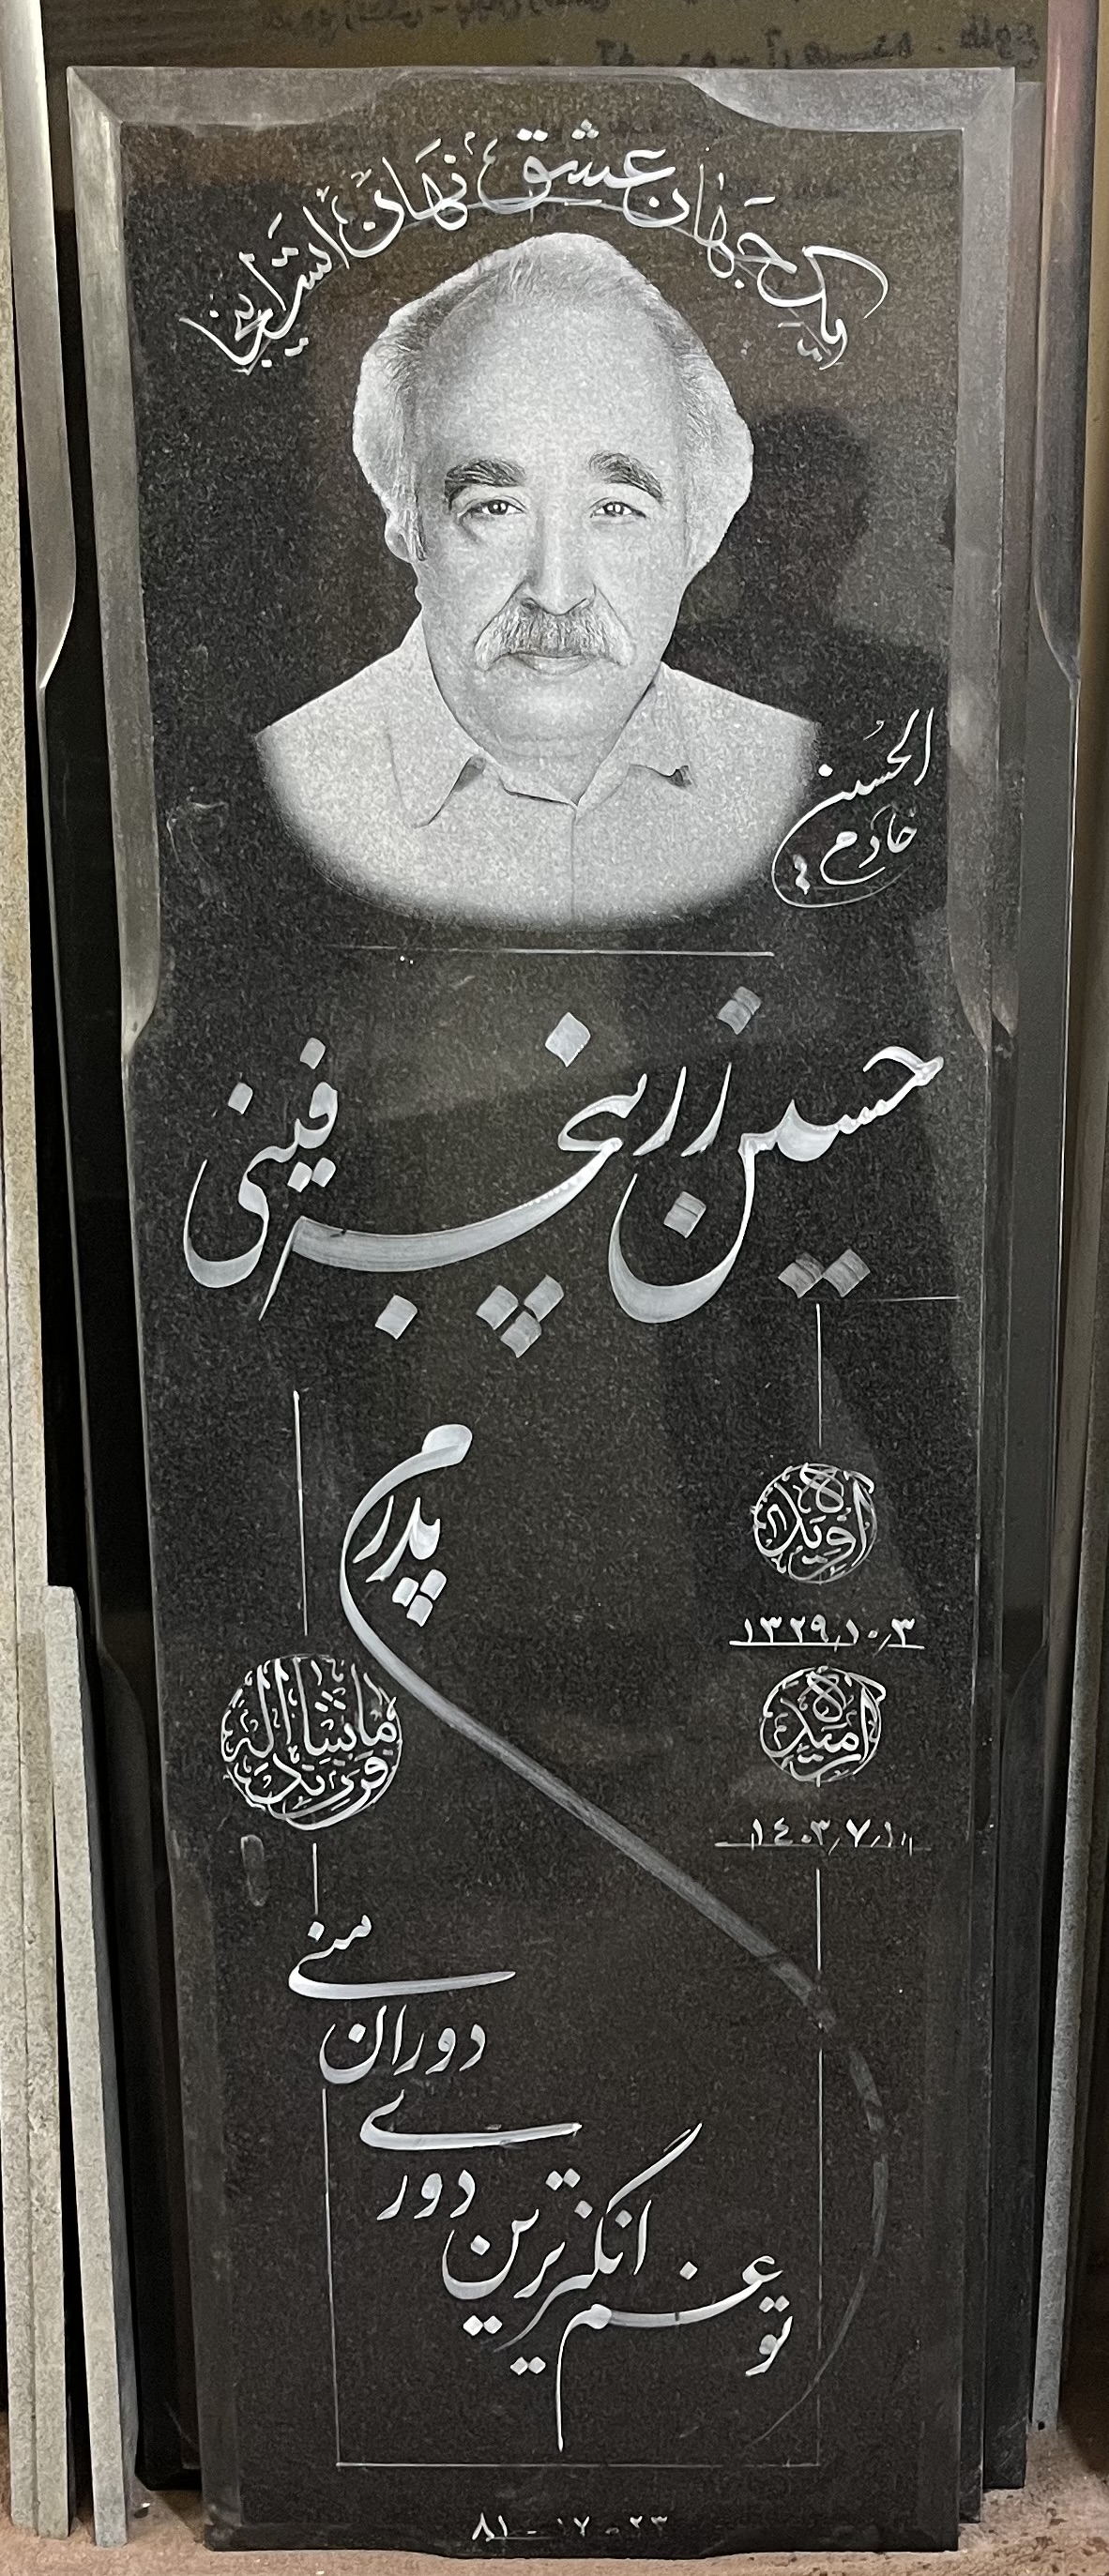 یک جهان عشق نهان است اینجا
خادم الحسین
حسین زرپنجه فینی
پدرم
آفریده
۱۳۲۹٫۱۰٫۳
آرمیده
۱۴۰۳٫۷٫۱
فرزند ماشااله
تو غم انگیزترین دوری دوران منی
۸۱ - ۱۷ - ۲۳